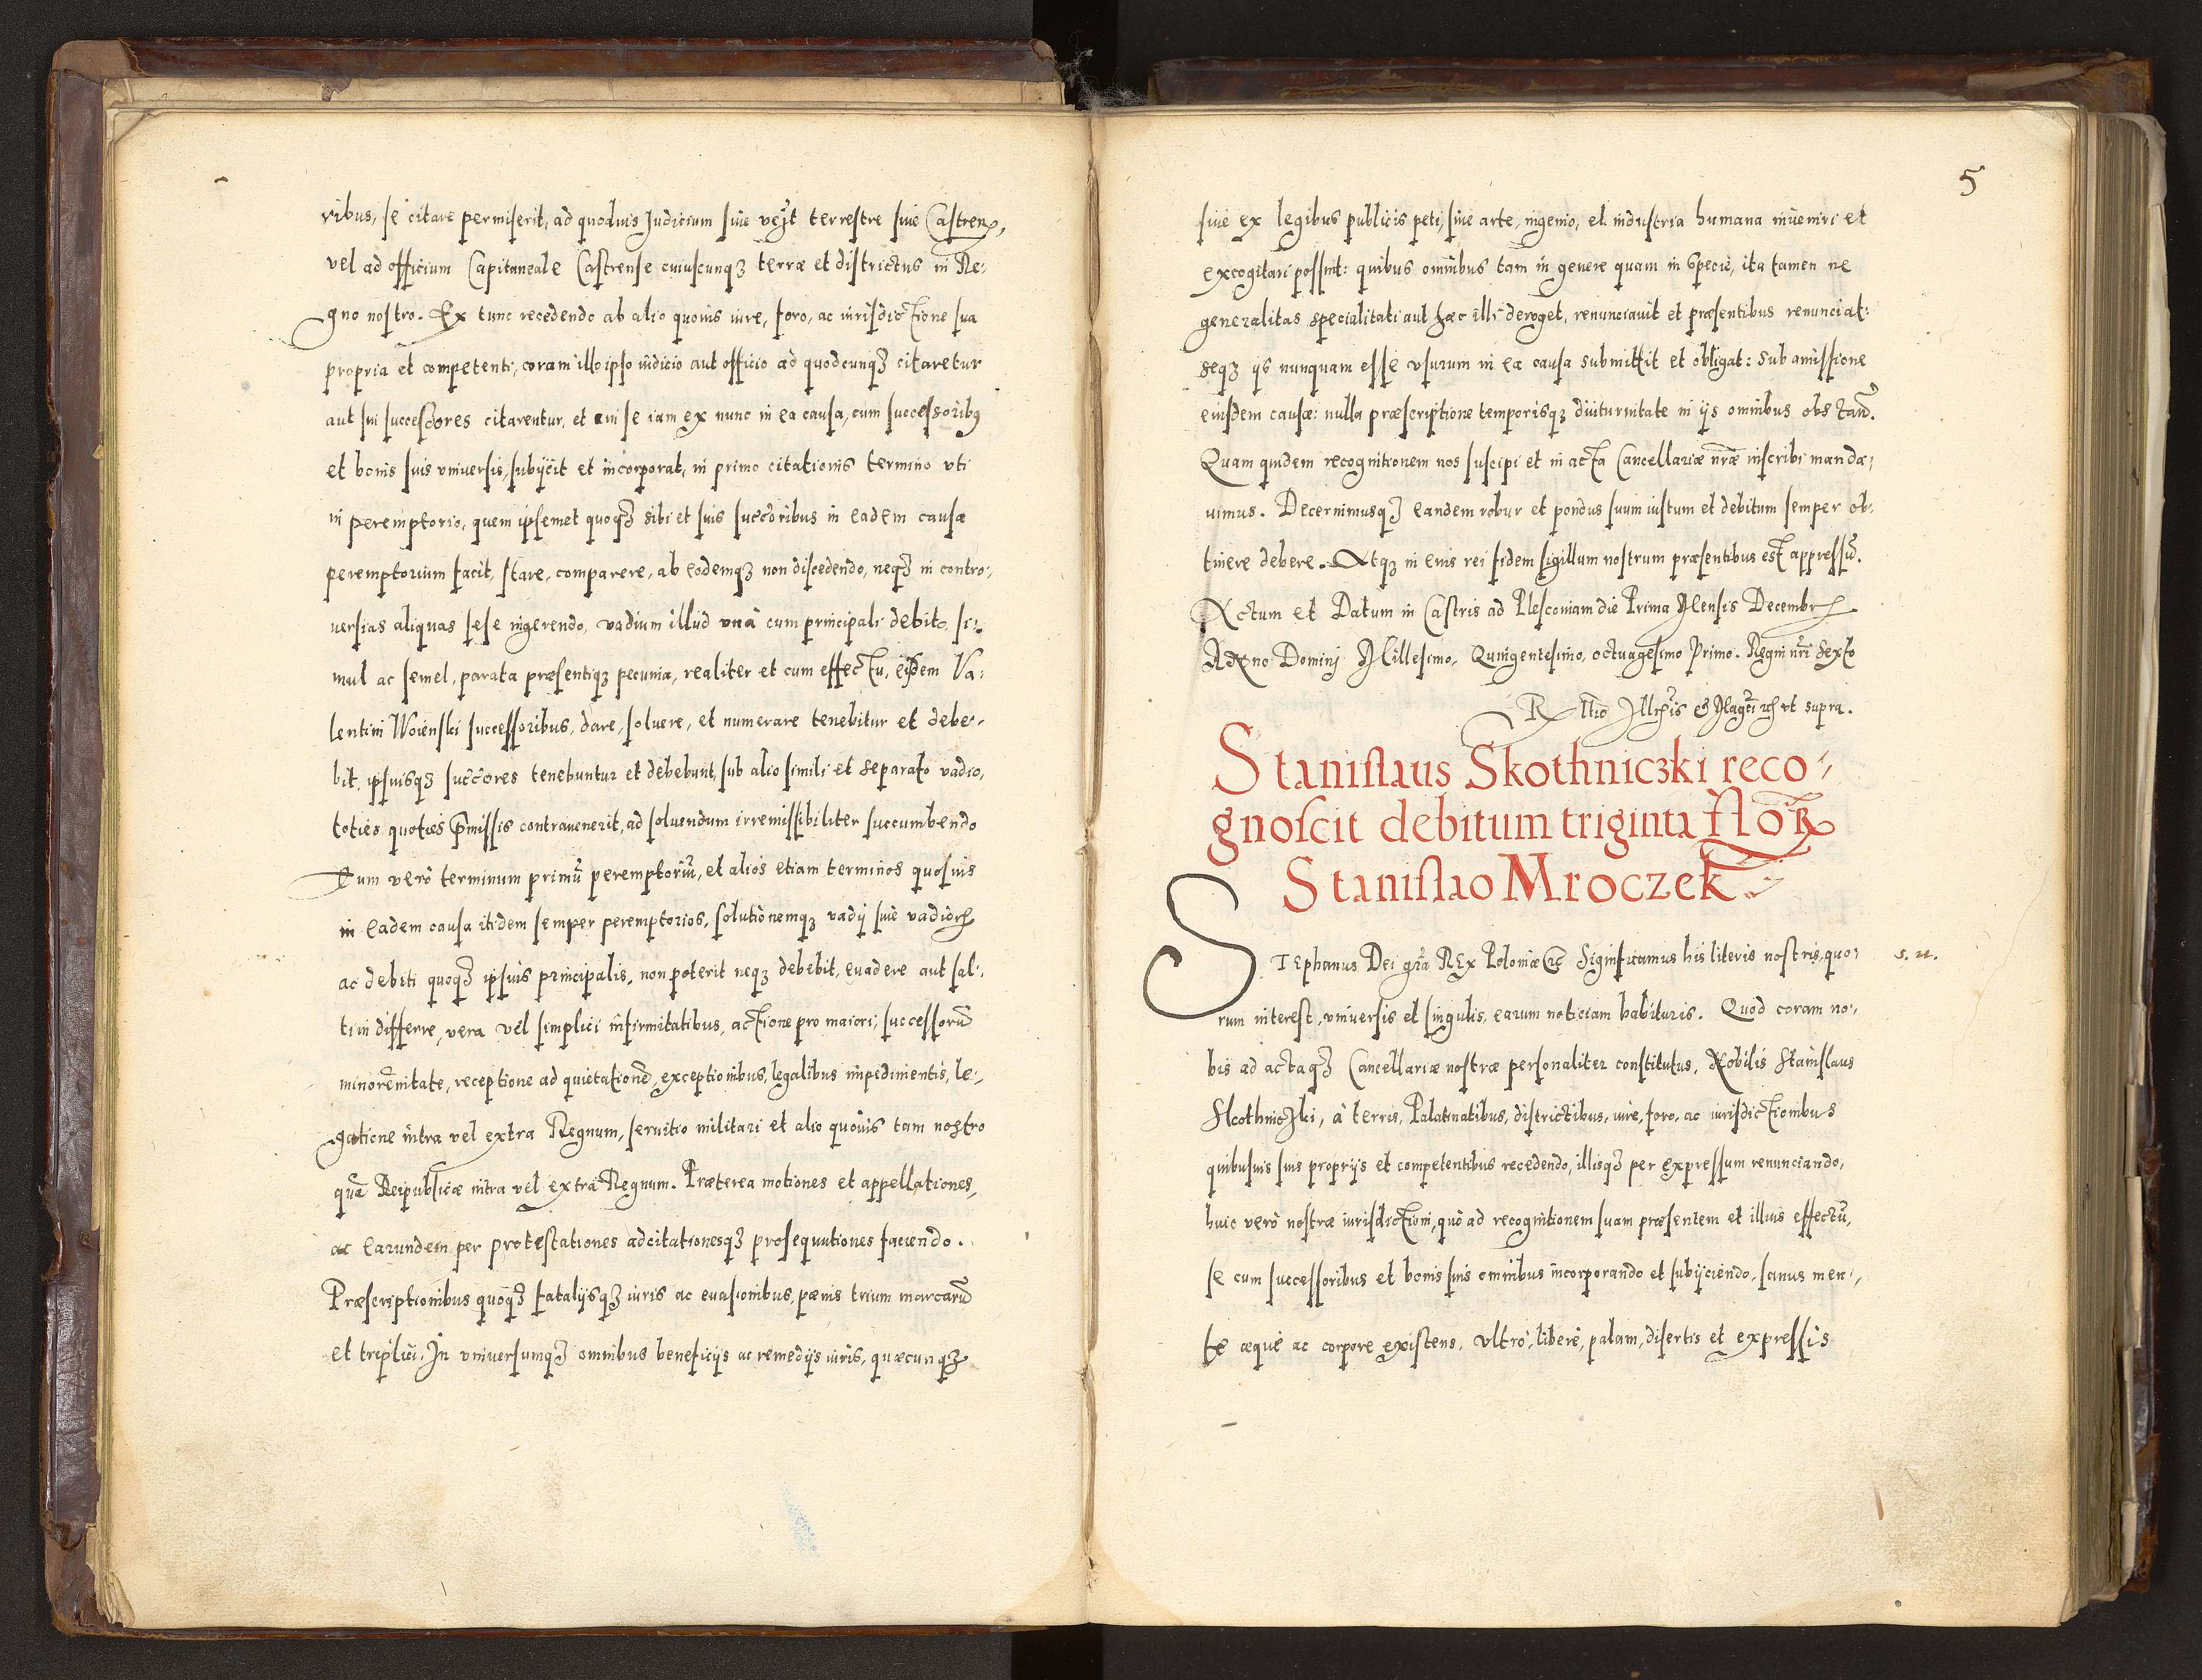 ribus, se citare permiserit, ad quoduis Judicium siue veϳt terrestre siue Castren,
vel ad officium Capitaneale Castrense cuiuscunqꝫ terræ et districtus in Re-
gno nostro. Ex tunc recedendo ab alio quouis iure, foro, ac iurisdictione sua
propria et competenti, coram illo ipso iudicio aut officio ad quodcunqꝫ citaretur
aut sui successores citarentur, et in se iam ex nunc in ea causa, cum successoribꝰ
et bonis suis vniuersis, subijcit et incorporat, in primo citationis termino vti
in peremptorio, quem ipsemet quoqꝫ sibi et suis succoribus in eadem causa
peremptorium facit, stare, comparere, ab eodemqꝫ non discedendo, neqꝫ in contro-
uersias aliquas sese ingerendo, vadium illud vnà cum principali debito, si-
mul ac semel, parata præsentiqꝫ pecunia, realiter et cum effectu, eisdem Va-
lentini Woienski successoribus, dare, soluere, et numerare tenebitur et debe-
bit, ipsiusqꝫ succores tenebuntur et debebunt, sub alio simili et separato vadio,
toties quoties p̄missis contrauenerit, ad soluendum irremissibiliter succumbendo
Eum verò terminum primū peremptoriū, et alios etiam terminos quosuis
in eadem causa itidem semper peremptorios, solutionemqꝫ vadij siue vadiorꝝ
ac debiti quoqꝫ ipsius principalis, non poterit neqꝫ debebit, euadere aut sal-
tim differre, vera vel simplici infirmitatibus, actione pro maiori, successorū
minorēnitate, receptione ad quietationē, exceptionibus, legalibus impedimentis, le-
gatione intra vel extra Regnum, seruitio militari et alio quouis tam nostro
quā Reipublicæ intra vel extra Regnum. Præterea motiones et appellationes,
ac earundem per protestationes adcitationesqꝫ prosequutiones faciendo.
Præscriptionibus quoqꝫ fatalijsqꝫ iuris ac euasionibus, pænis trium marcarū
et triplici. In vniuersumqꝫ omnibus beneficijs ac remedijs iuris, quæcunqꝫ
5
siue ex legibus publicis peti, siue arte, ingenio, et industria humana inueniri et
excogitari possint: quibus omnibus tam in genere quam in specie, ita tamen ne
generalitas specialitati aut hæc illi deroget, renunciauit et præsentibus renunciat:
seqꝫ ijs nunquam esse vsurum in ea causa submittit et obligat: sub amissione
eiusdem causæ: nulla præscriptione temporisqꝫ diuturnitate in ijs omnibus obstan̄.
Quam quidem recognitionem nos suscipi et in acta Cancellariæ nr̄æ inscribi manda-
uimus. Decernimusqꝫ eandem robur et pondus suum iustum et debitum semper ob-
tinere debere. Atqꝫ in eius rei fidem sigillum nostrum præsentibus est appressū.
Actum et Datum in Castris ad Plesconiam die Prima Mensis Decembrꝭ
Anno Dominj Millesimo, Quingentesimo, octuagesimo Primo. Regni nr̄i Sexto
Rl̄tio Illr̄is & Magci ꝛc̄ vt supra.
Stanislaus Skothniczki reco-
gnoscit debitum triginta flōꝝ
Stanislao Mroczek
STEphanus Dei gr̄a REx Poloniæ ꝛc̄ Significamus his literis nostris, quo-
s. n.
rum interest, vniuersis et singulis, earum noticiam habituris. Quod coram no-
bis ad actaqꝫ Cancellariæ nostræ personaliter constitutus, Nobilis Stanislaus
Skothniczki, à terris, Palatinatibus, districtibus, iure, foro, ac iurisdictionibus
quibusuis suis proprijs et competentibus recedendo, illisqꝫ per expressum renunciando,
huic verò nostræ iurisdictioni, quò ad recognitionem suam præsentem et illius effectū,
se cum successoribus et bonis suis omnibus incorporando et subijciendo, sanus men-
te æquè ac corpore existens, vltrò, liberè, palam, disertis et expressis